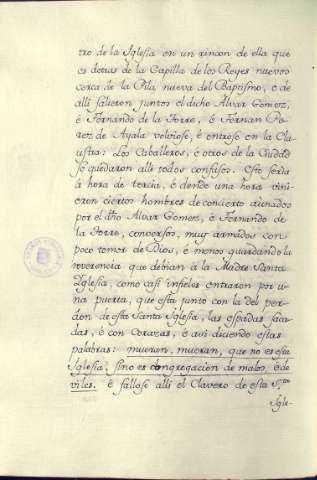 tro de la Iglesia en un rincon de ella que
es detras de la Capilla de los Reyes nuevos
cerca de la Pila nueva del Baptismo, e de
alli salieron juntos el dicho Alvar Gomez,
é Fernando de la Torre, é Fernan Pe-
rez de Ayala volviose, é entrose en la Clau-
stra: Los Caballeros, é otros de la Ciudad
se quedaron alli todos confusos. Esto seria
á hora de tercia, é dende una hora vini-
eron ciertos hombres de concierto aunados
por el dho Alvar Gomez, é Fernando de
la Torre, conversos, muy armados con
poco temor de Dios, é menos guardando la
reverencia que debian á la Madre Santa
Iglesia, como casi infieles entraron por u-
na puerta, que esta junto con la del per-
don de esta Santa Iglesia, las espadas saca-
das, é con Corazas, é aun diciendo estas
palabras: mueran, mueran, que no es esta
Iglesia, sino es congregacion de malos, é de
viles. é fallose alli el Clavero de esta S.ta
Igle-